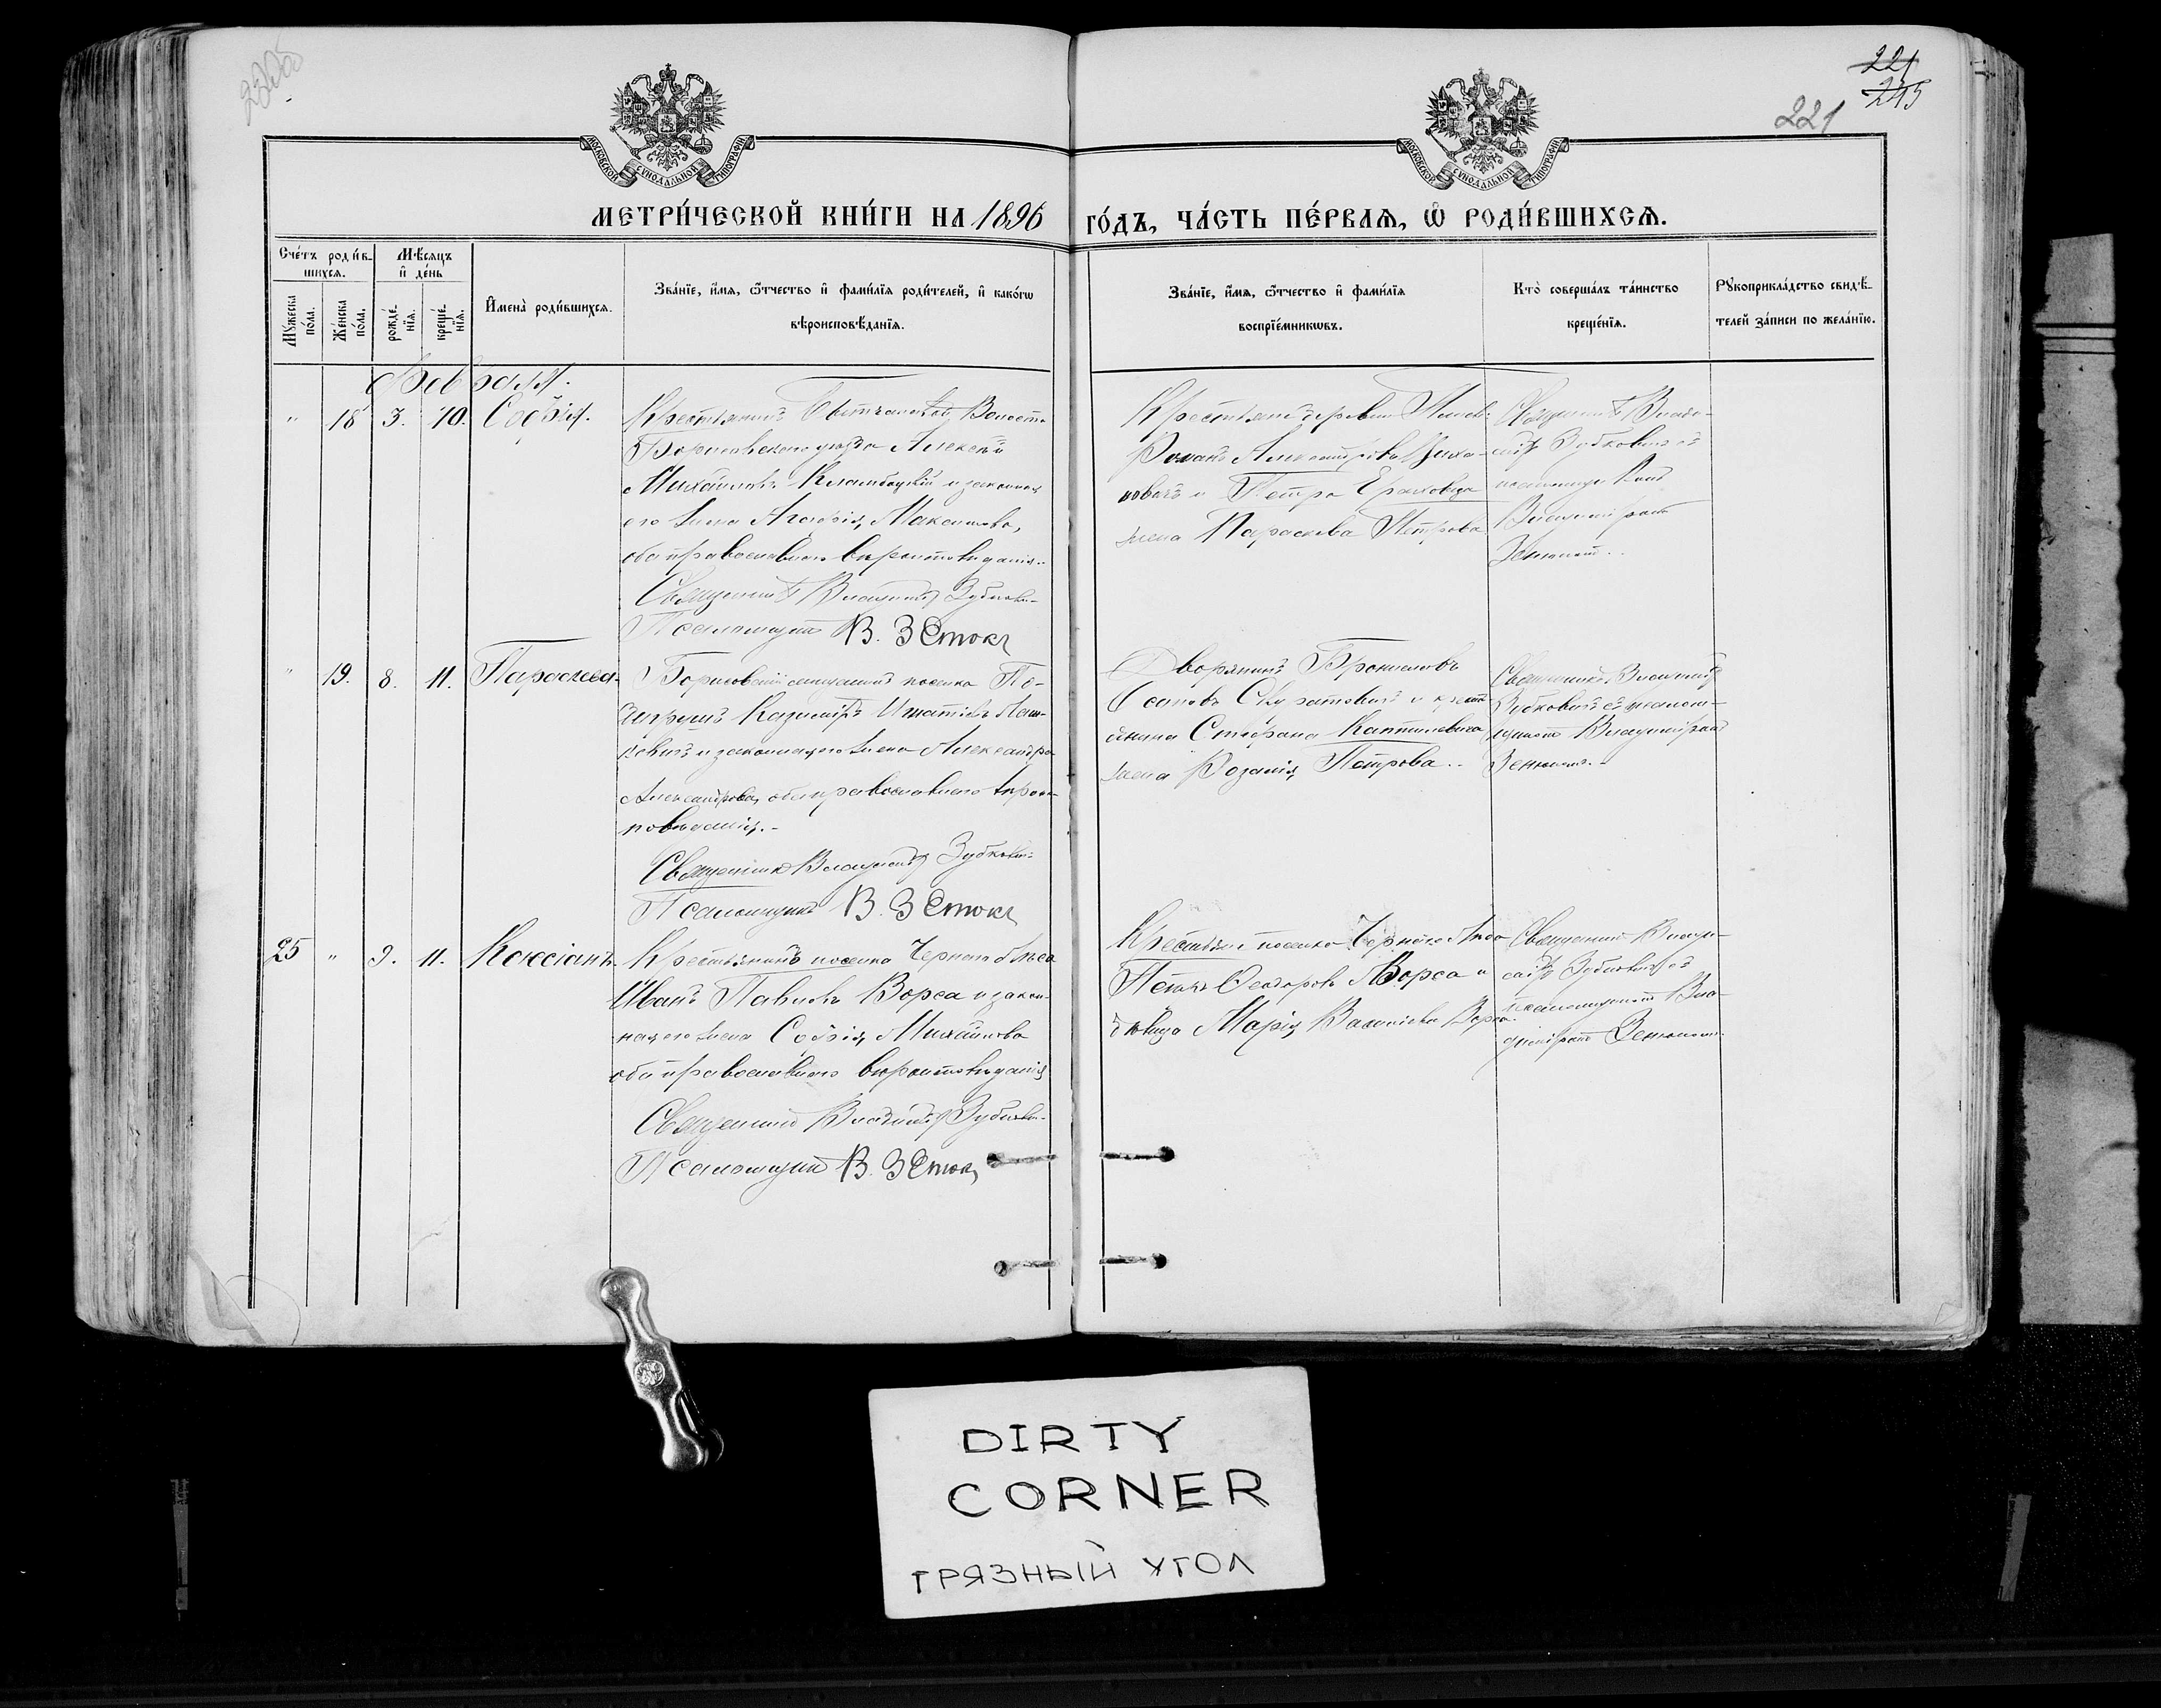 221
245
221
МОСКОВСКОЙ СѴНОДАЛЬНОЙ ТИПОГРАФІИ
МОСКОВСКОЙ СѴНОДАЛЬНОЙ ТИПОГРАФІИ
МЕТРИ́ЧЕСКОЙ КНИ́ГИ НА 1896 ГО́ДЪ, ЧА́СТЬ ПЕ́РВАѦ, Ѡ҆ РОДИ́ВШИХСѦ.
Сче́тъ роди́в-
шихсѧ.
Мѣ́сѧцъ
и҆ де́нь
Мꙋ́жеска
по́ла.
Же́нска
по́ла.
рожде́-
нїѧ.
креще́-
нїѧ.
И҆мена̀ роди́вшихсѧ.
Зва́нїе, и҆́мѧ, ѻ҆́тчество и҆ фами́лїѧ роди́телей, и҆ како́гѡ
вѣроисповѣ́данїѧ.
Зва́нїе, и҆́мѧ, ѻ҆́тчество и҆ фами́лїѧ
воспрїе́мникѡвъ.
Кто̀ соверша́лъ та́инство
креще́нїѧ.
Рꙋкоприкла́дство свидѣ́-
телей за́писи по жела́нїю.
Февраля.
" 18 3. 10. Софія.
Крестьянинъ Волости
Борисовскаго уѣзда Алексѣй
Михаиловъ и законная
его жена Агафія Максимова,
оба православнаго вѣроисповѣданія.
Священникъ Владиміръ Зубкови-
Псаломщикъ В. Зенюкъ
Крестьянинъ деревни
Романъ Александровъ
и Петра
жена Параскева Петрова
Священникъ Влади-
міръ Зубковичъ съ
псаломщикомъ
Владиміромъ
Зенюкомъ.
" 19. 8. 11. Параскева.
Борисовскій мѣщанинъ поселка
Казиміръ Игнатіевъ
и законная его жена Александра
Александрова, оба православнаго вѣроис-
повѣданія.-
Священникъ Владиміръ Зубкови-
Псаломщикъ В. Зенюкъ
Дворянинъ Брониславъ
Осиповъ Скуратовичъ и кресть-
янина Стефана
жена Розалія Петрова..
Священникъ Владиміръ
Зубковичъ съ псалом-
щикомъ Владиміромъ
Зенюкомъ.-
25 " 9. 11. Кассіанъ.
Крестьянинъ поселка Чернаго Лѣса
Иванъ Павловъ Ворса и закон-
ная его жена Софія Михаилова
оба православнаго вѣроисповѣданія
Священникъ Владиміръ Зубкови-
Псаломщикъ В. Зенюкъ
Крестьян. поселка Чернаго Лѣса
Петръ Ѳеодоровъ Ворса и
дѣвица Марія Васильева Ворса.
Священникъ Влади-
міръ Зубковичъ съ
псаломщикомъ Вла-
диміромъ Зенюкомъ.
DIRTY
CORNER
ГРЯЗНЫЙ УГОЛ